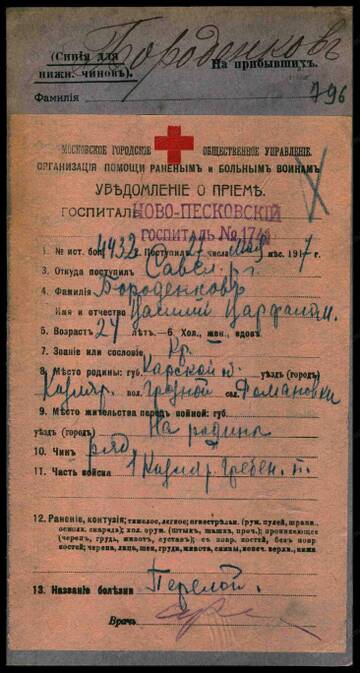 Бороденковъ
(Синія для
нижн. чиновъ).
На прибывшихъ.
Фамилія
796
МОСКОВСКОЕ ГОРОДСКОЕ ОБЩЕСТВЕННОЕ УПРАВЛЕНІЕ.
ОРГАНИЗАЦІЯ ПОМОЩИ РАНЕНЫМЪ И БОЛЬНЫМЪ ВОИНАМЪ
УВѢДОМЛЕНІЕ О ПРІЕМѢ.
ГОСПИТАЛЬ НОВО-ПЕСКОВСКІЙ
ГОСПИТАЛЬ №174
1. № ист. бол. 4432 2. Поступилъ 27 числа мая мѣс. 1917 г.
3. Откуда поступилъ Савел.
4. Фамилія Бороденковъ
Имя и отчество
5. Возрастъ 24 лѣтъ.— 6. Хол., жен., вдовъ.
7. Званіе или сословіе Кр.
8. Мѣсто родины: губ. Карской уѣздъ (городъ)
вол. Грозной сел. Романовки
9. Мѣсто жительства передъ войной: губ.
уѣздъ (городъ) На родинѣ
10. Чинъ ряд.
11. Часть войска 1 Кизляр. Гребен. п.
12. Раненіе, контузія; тяжелое, легкое; огнестрѣльн. (руж. пулей, шрапн.,
осколк. снаряда); хол. оруж. (штыкъ, шашка, проч.); проникающее
(черепъ, грудь, животъ, суставъ); съ повр. костей, безъ повр.
костей; черепа, лица, шеи, груди, живота, спины, конеч. верхн., нижн.
13. Названіе болѣзни Перелой.
Врачъ